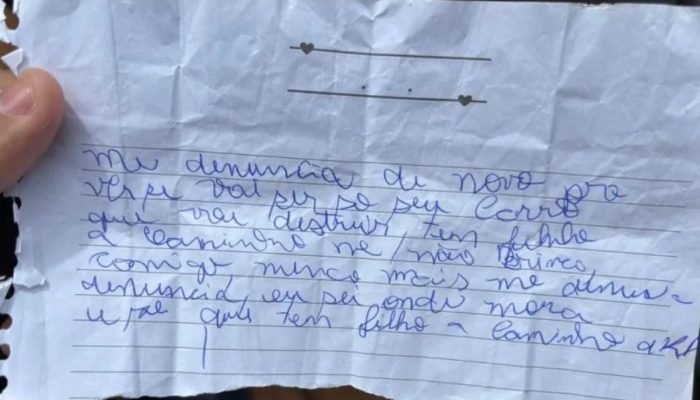 me denuncia de novo pra
ver se vai ser so seu carro
que vai destruir, tem filho
a caminho né, não brinca
comigo, nunca mais me denun-
denuncia, eu sei onde mora
e que tem filho a caminho